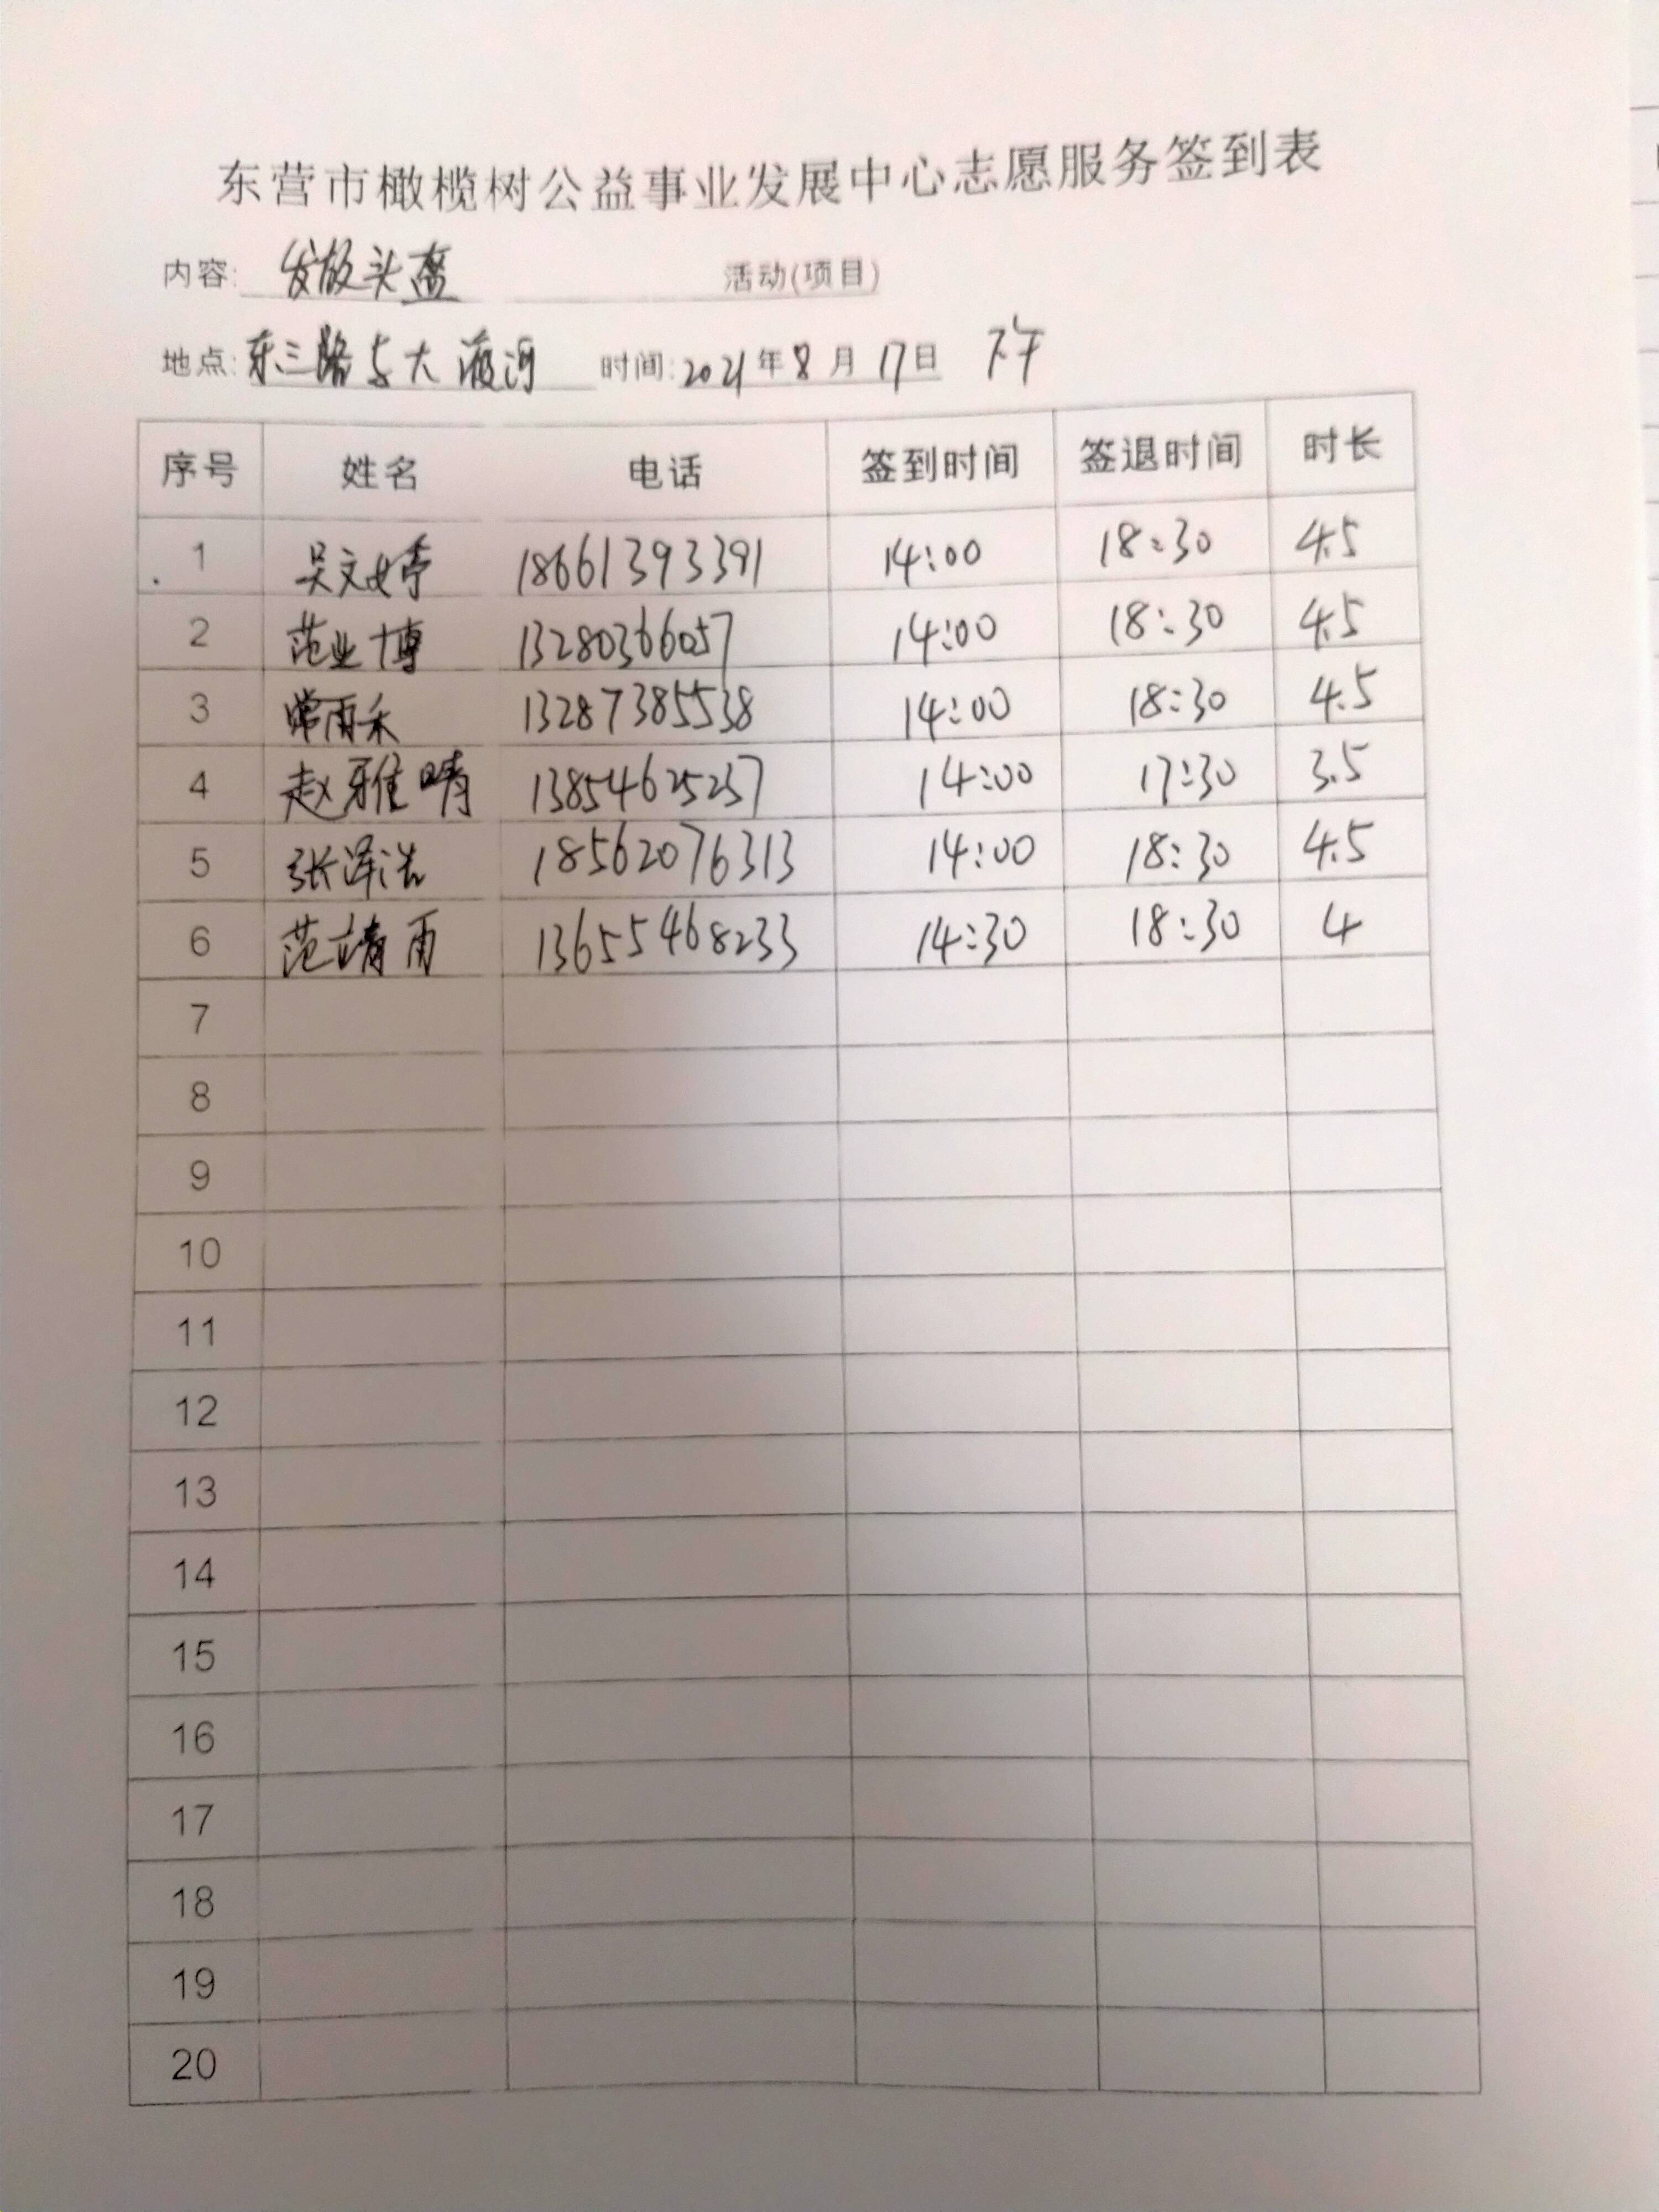 东营市橄榄树公益事业发展中心志愿服务签到表
内容: 发放头盔 活动(项目)
地点: 东三路与大渡河 时间: 2021年8月17日 下午
序号 姓名 电话 签到时间 签退时间 时长
1 吴文婷 18661393391 14:00 18:30 4.5
2 范业博 13280366057 14:00 18:30 4.5
3 常雨禾 13287385538 14:00 18:30 4.5
4 赵雅晴 13854625237 14:00 17:30 3.5
5 张泽浩 18562076313 14:00 18:30 4.5
6 范靖雨 13655468233 14:30 18:30 4
7
8
9
10
11
12
13
14
15
16
17
18
19
20